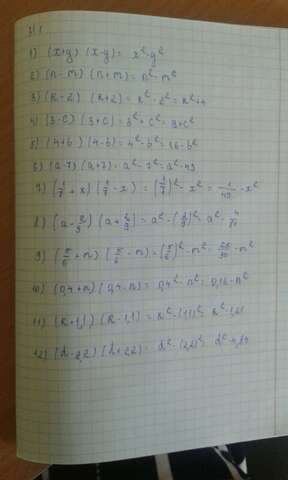 31.
1) (x+y) (x-y) = x²-y²
2) (n-m) (n+m) = n²-m²
3) (k-2) (k+2) = k²-2² = k²+4
4) (3-c) (3+c) = 3²+c² = 9+c²
5) (4+b) (4-b) = 4²-b² = 16-b²
6) (a-7) (a+7) = a²-7² = a²-49
7) (1/7+x) (1/7-x) = (1/7)²-x² = 1/49-x²
8) (a-2/9) (a+2/9) = a²-(2/9)² = a²-4/81
9) (5/6+n) (5/6-n) = (5/6)²-n² = 25/30-n²
10) (0,4+n) (0,4-n) = 0,4²-n² = 0,16-n²
11) (k+1,1) (k-1,1) = k²-(1,1)² = k²-1,21
12) (d-2,2) (d+2,2) = d²-(2,2)² = d²-4,84